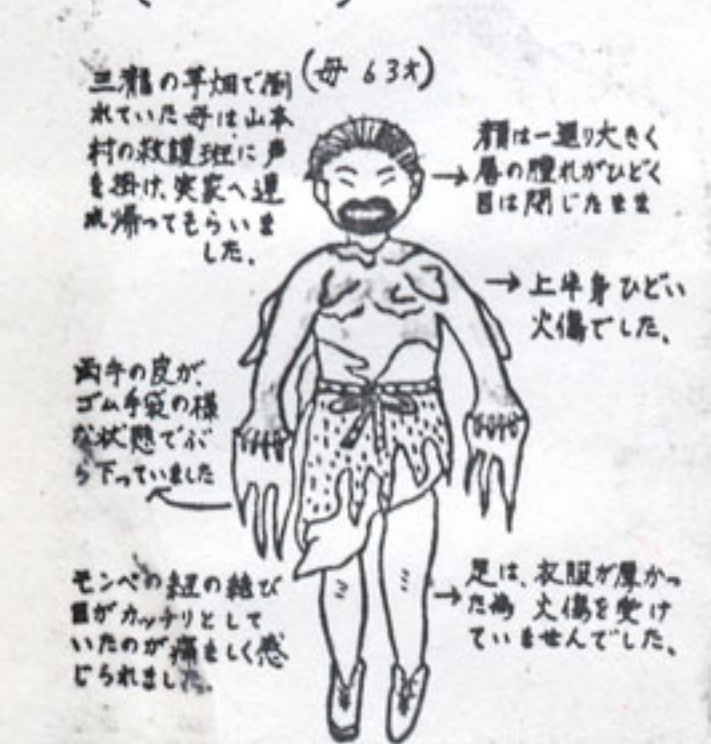 (母 63才)
三瀧の芋畑で倒
れていた母は山本
村の救護班に声
を掛け、実家へ連
れ帰ってもらいま
した。
顔は一廻り大きく
唇の腫れがひどく
目は閉じたまま
上半身ひどい
火傷でした。
両手の皮が、
ゴム手袋の様
な状態でぶ
ら下っていました
モンペの紐の結び
目がカッチリとして
いたのが痛ましく感
じられました。
足は、衣服が厚かっ
た為 火傷を受け
ていませんでした。